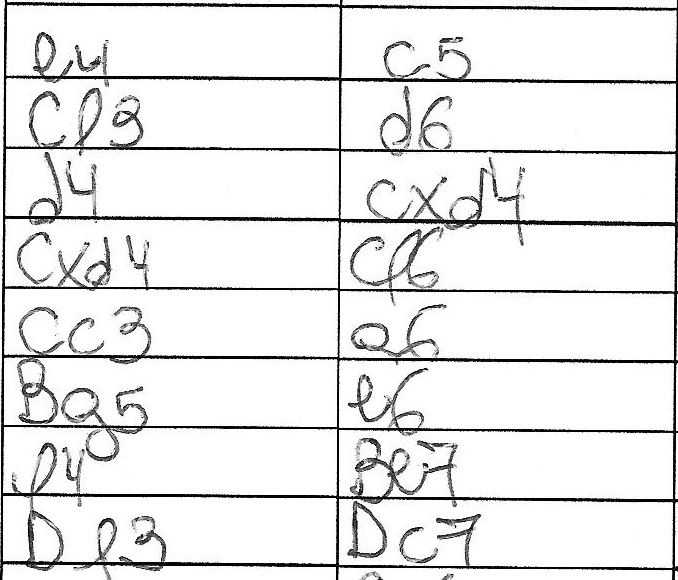 e4 c5
Cf3 d6
d4 cxd4
Cxd4 Cf6
Cc3 a6
Bg5 e6
f4 Be7
Df3 Dc7